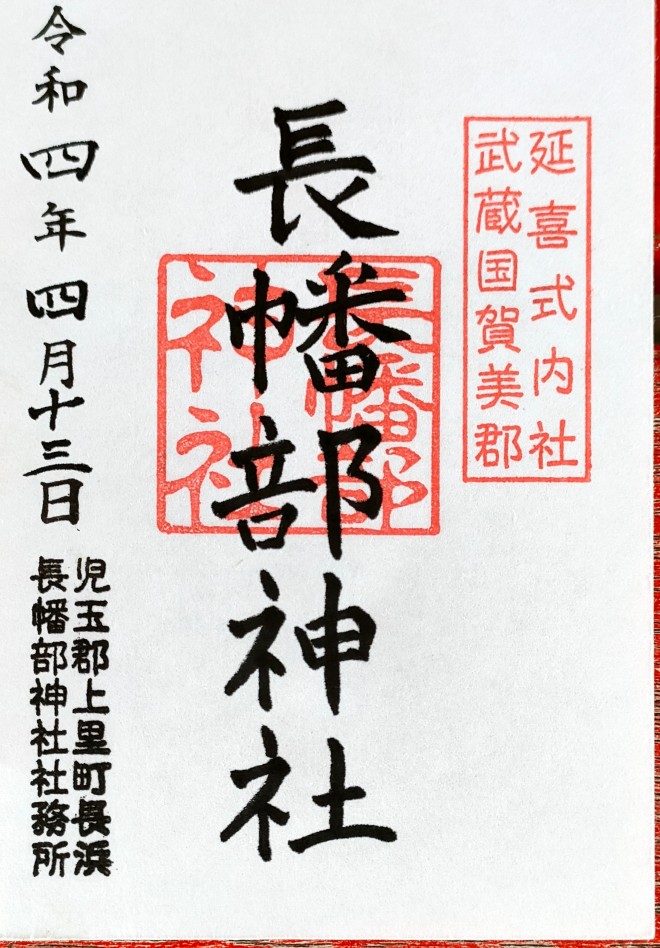 延喜式内社
武蔵国賀美郡
長幡部神社
長幡部
神社
令和四年四月十三日
児玉郡上里町長浜
長幡部神社社務所